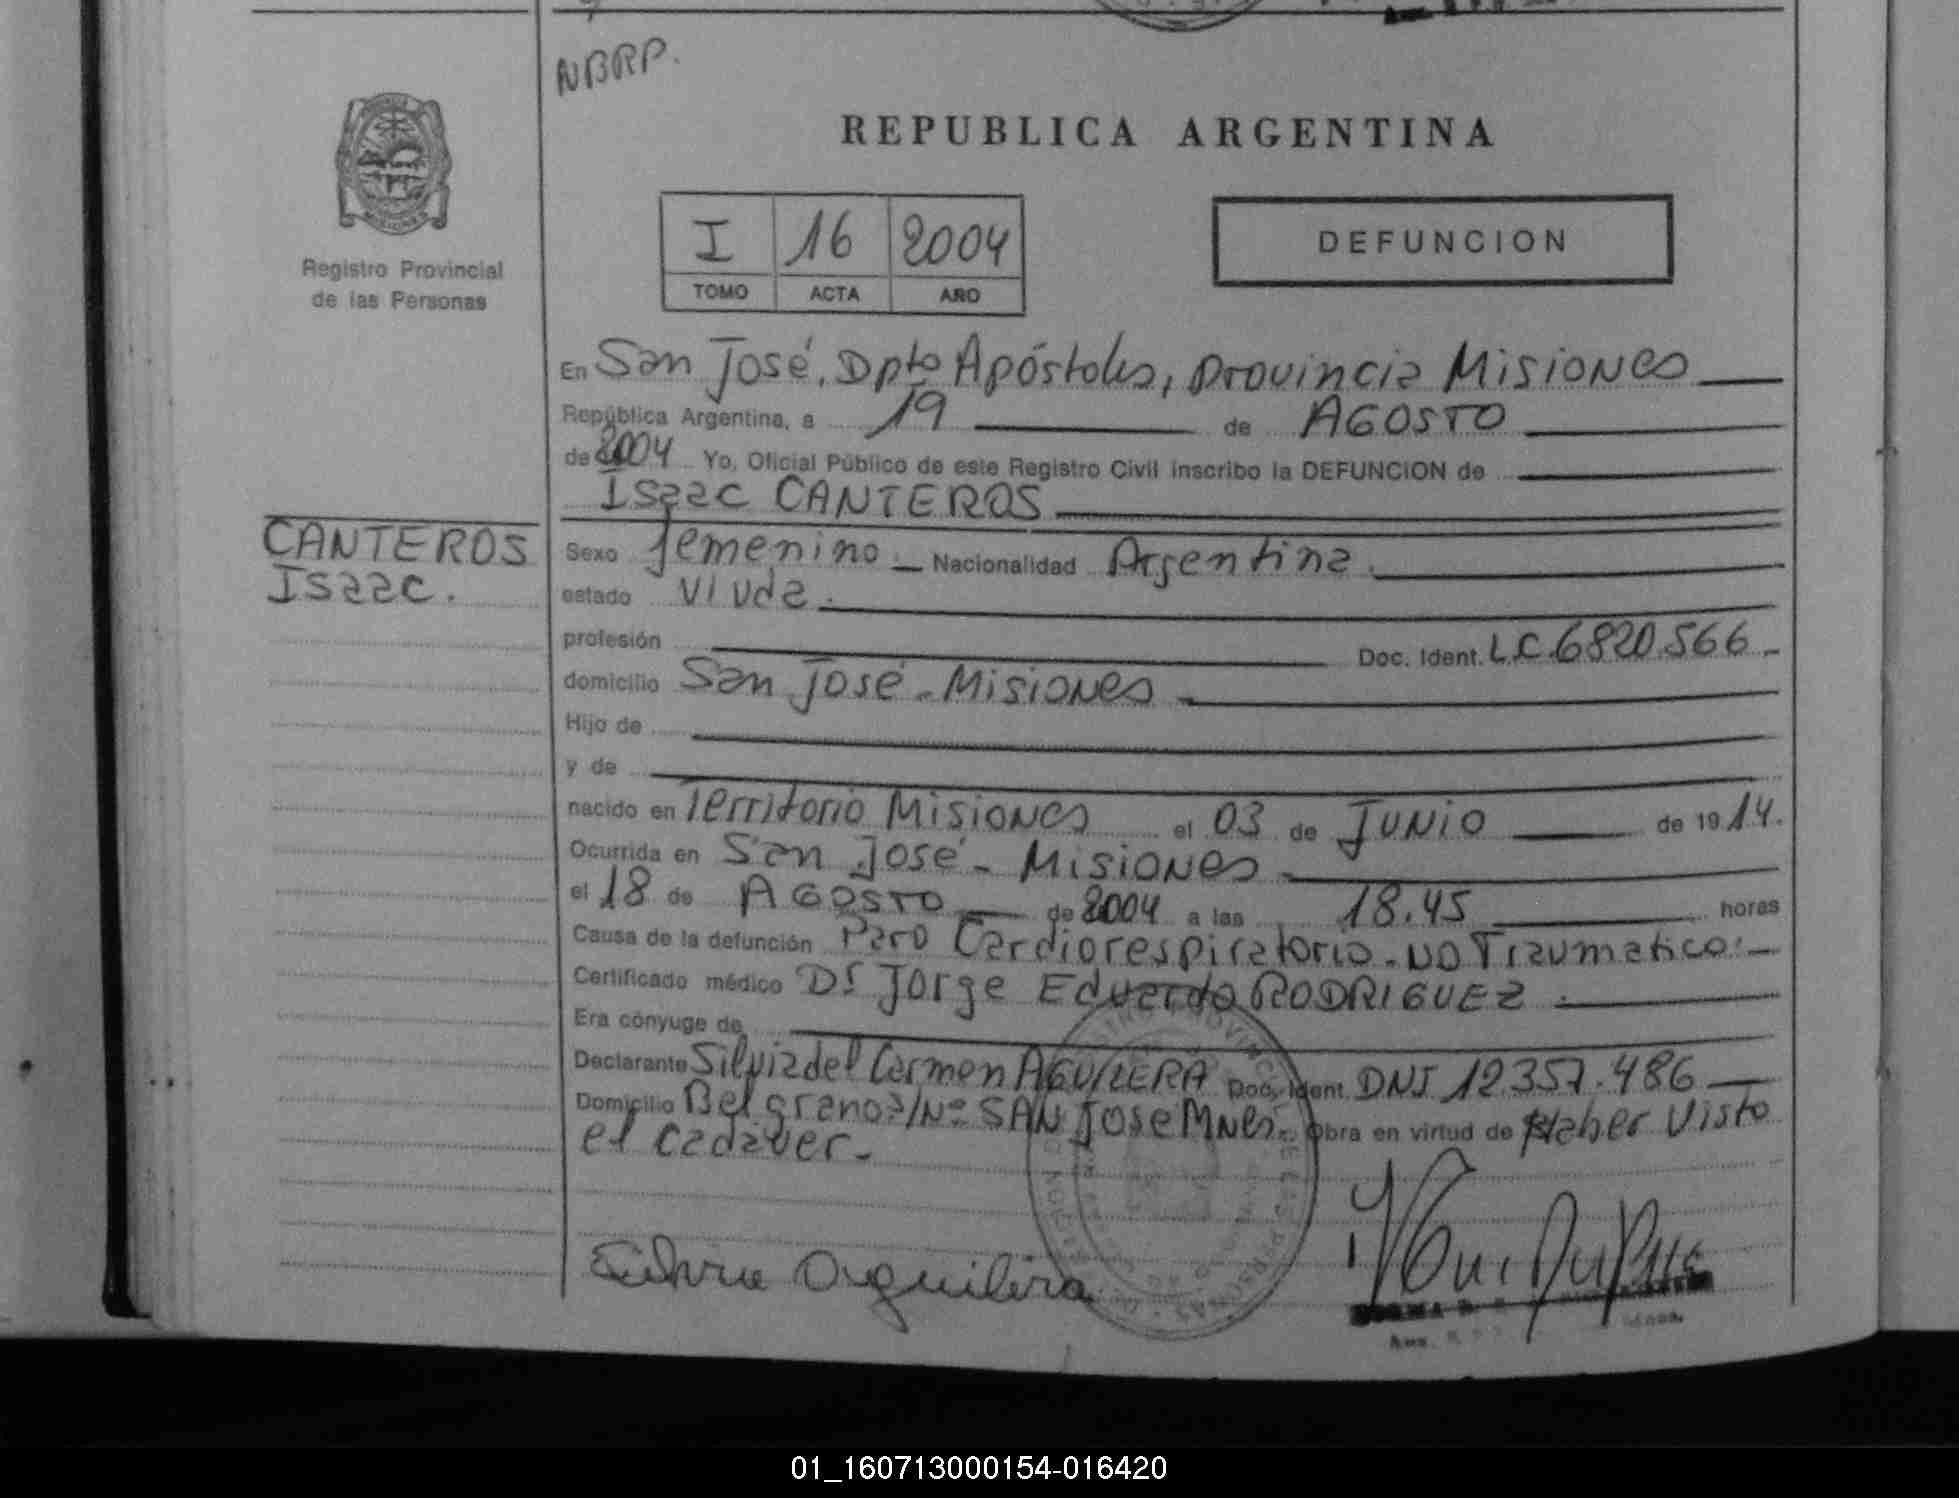 NBRP.
REPUBLICA ARGENTINA
I 16 2004
TOMO ACTA AÑO
DEFUNCION
Registro Provincial
de las Personas
En San José, Dpto Apóstoles, Provincia Misiones
República Argentina, a 19 de AGOSTO
de 2004 Yo, Oficial Público de este Registro Civil inscribo la DEFUNCION de
Isaac CANTEROS
CANTEROS
Isaac.
Sexo femenino. Nacionalidad Argentina.
estado viuda.
profesión Doc. Ident. L.C. 6820.566
domicilio San José - Misiones
Hijo de
y de
nacido en Territorio Misiones el 03 de JUNIO de 19 14.
Ocurrida en San José - Misiones
el 18 de AGOSTO de 2004 a las 18.45 horas
Causa de la defunción Paro Cardiorespiratorio - NO Traumatico.
Certificado médico Dr. Jorge Eduardo RODRIGUEZ.
Era cónyuge de
Declarante Silvia del Carmen AGUILERA Doc. Ident. DNI 12.357.486
Domicilio Belgrano s/Nº SAN JOSE Mnes. Obra en virtud de Haber visto
el cadáver.
Silvia Aguilera
01_160713000154-016420